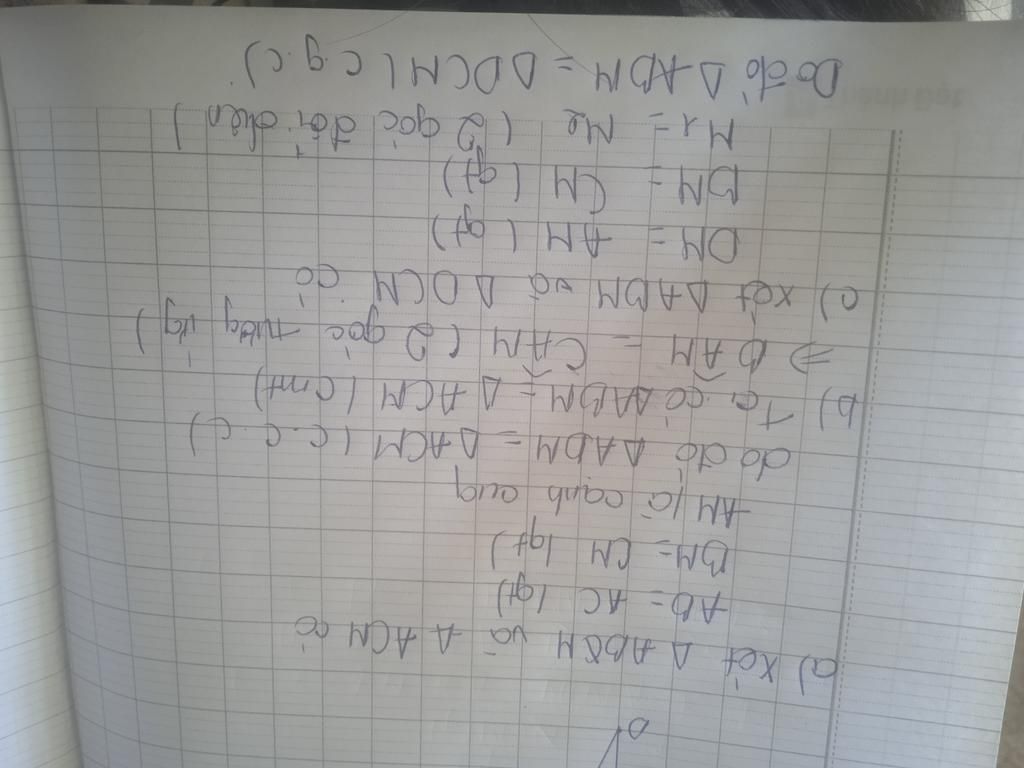 D
a) Xét Δ ABM và Δ ACM có
AB = AC (gt)
BM = CM (gt)
AM là cạnh
do đó Δ ABM = Δ ACM (c.c.c)
b) Ta có ΔABM = Δ ACM (cmt)
=> BAM = CAM (2 góc tương ứng)
c) xét ΔABM và Δ DCM có
DM = AM (gt)
BM = CM (gt)
M1 = M2 (2 góc đối diện)
Do đó Δ ABM = Δ DCM (c.g.c)